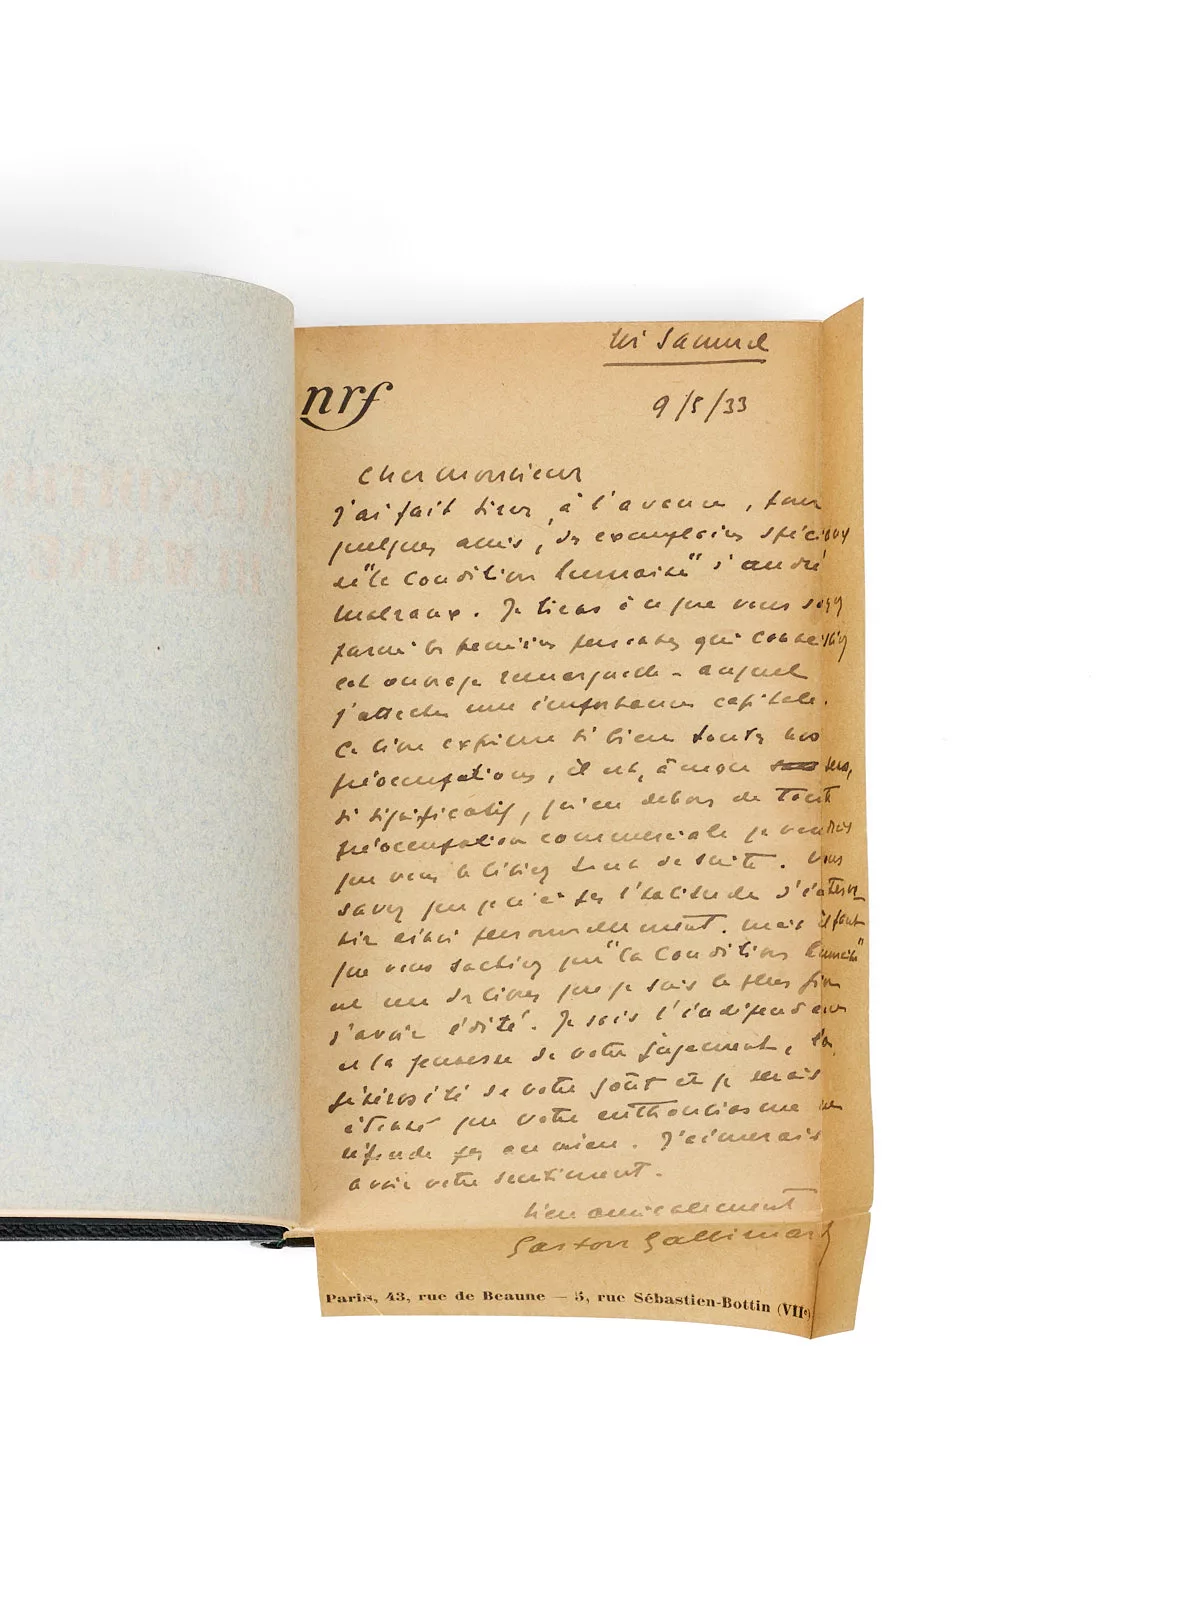 Samuel
nrf
9/5/33
Cher Monsieur
J'ai fait tirer, à l'avance, pour
quelques amis, des exemplaires spéciaux
de "la Condition humaine" d'André
Malraux. Je tiens à ce que vous soyez
parmi les premières personnes qui connaissiez
cet ouvrage remarquable - auquel
j'attache une importance capitale.
Ce livre exprime si bien toutes nos
préoccupations, il est, à mon sens,
si significatif, qu'en dehors de toute
préoccupation commerciale je voudrais
que vous le lisiez tout de suite. Vous
savez que je n'ai pas l'habitude d'interve
nir ainsi personnellement. Mais il faut
que vous sachiez que "la Condition humaine"
est un des livres que je suis le plus fier
d'avoir édité. Je sais l'indépendance
et la jeunesse de votre jugement, la
générosité de votre goût et je serais
étonné que votre enthousiasme ne
réponde pas au mien. J'aimerais
avoir votre sentiment.
bien amicalement
Gaston Gallimard
Paris, 43, rue de Beaune — 5, rue Sébastien-Bottin (VIIe)